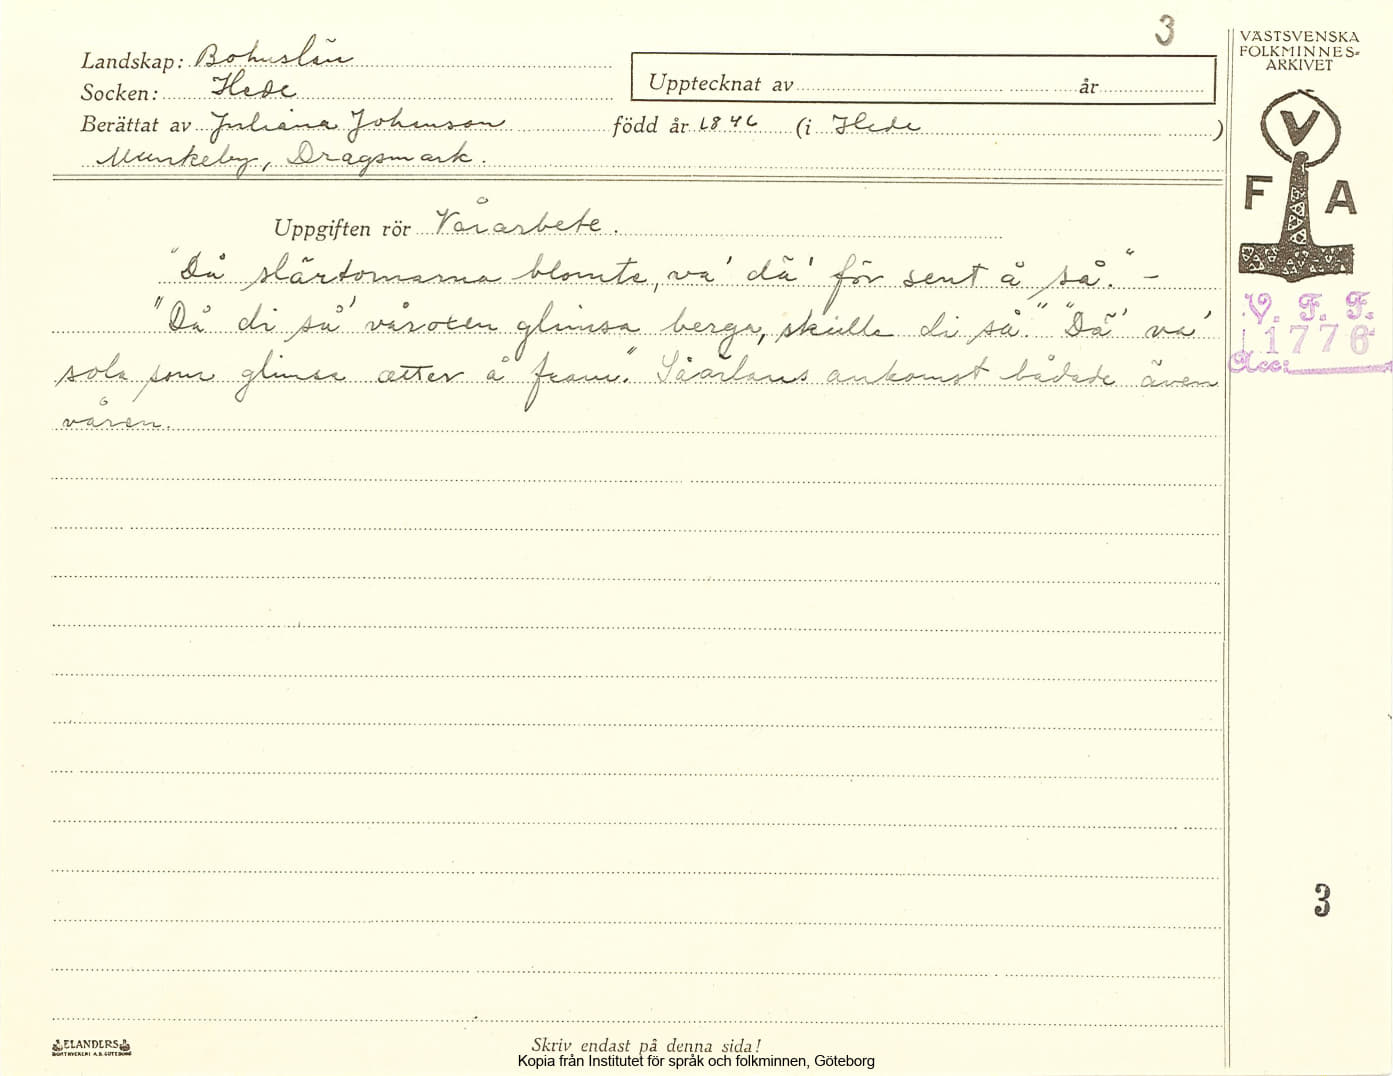 3
VÄSTSVENSKA
FOLKMINNES-
ARKIVET
Landskap: Bohuslän
Socken: Hede
Upptecknat av år
Berättat av Juliana Johanson född år 1846 (i Hede )
Munkeby, Dragsmark.
V
F A
Uppgiften rör Vårarbete.
"Då slårtornarna blomte, va' dä' för sent å så." -
"Då di så' våroxen glimsa berga, skulle di så." "Dä' va'
sola som glimsa ætter å fram." Såärlans ankomst bådade även
våren.
V. F. F.
1776
Acc:
3
ELANDERS
BOKTRYCKERI A.B. GÖTEBORG
Skriv endast på denna sida!
Kopia från Institutet för språk och folkminnen, Göteborg